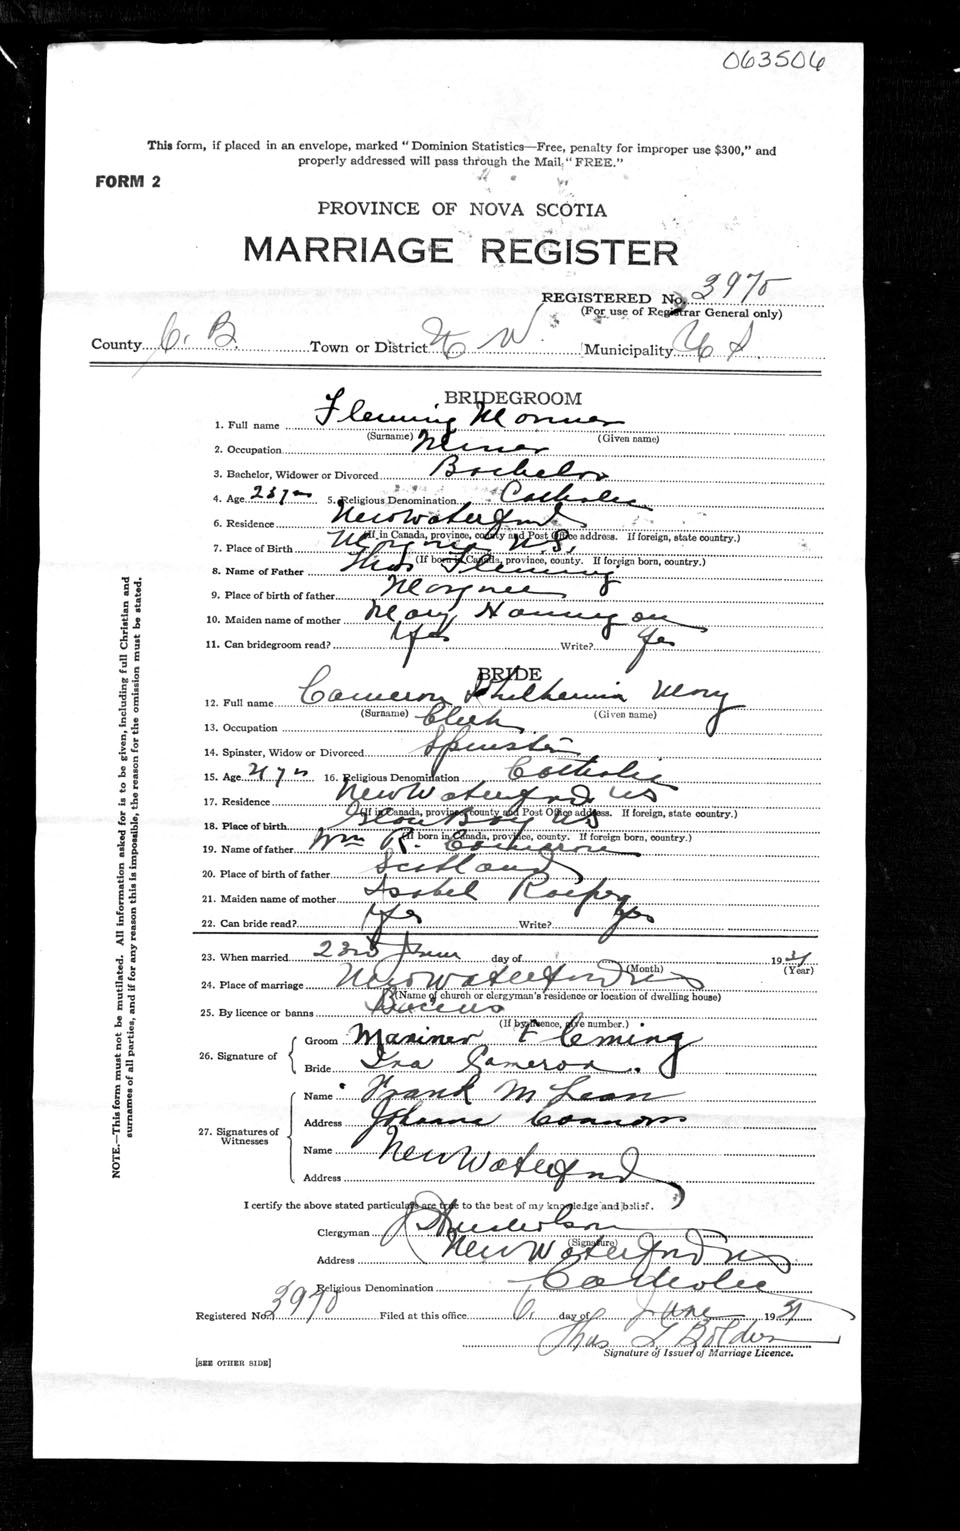 063506
This form, if placed in an envelope, marked "Dominion Statistics—Free, penalty for improper use $300," and
properly addressed will pass through the Mail "FREE."
FORM 2
PROVINCE OF NOVA SCOTIA
MARRIAGE REGISTER
REGISTERED No. 3970
(For use of Registrar General only)
County C. B. Town or District N W. Municipality
BRIDEGROOM
1. Full name Fleming
(Surname) (Given name)
2. Occupation Miner
3. Bachelor, Widower or Divorced Bachelor
4. Age 5. Religious Denomination Catholic
6. Residence New Waterford
(If in Canada, province, county and Post Office address. If foreign, state country.)
7. Place of Birth N.S.
(If born in Canada, province, county. If foreign born, country.)
8. Name of Father Thos Fleming
9. Place of birth of father
10. Maiden name of mother Mary
11. Can bridegroom read? Yes Write? Yes
BRIDE
12. Full name Cameron Mary
(Surname) (Given name)
13. Occupation Clerk
14. Spinster, Widow or Divorced Spinster
15. Age 16. Religious Denomination Catholic
17. Residence New Waterford NS
(If in Canada, province, county and Post Office address. If foreign, state country.)
18. Place of birth Glace Bay NS
(If born in Canada, province, county. If foreign born, country.)
19. Name of father Wm R. Cameron
20. Place of birth of father Scotland
21. Maiden name of mother Isabel
22. Can bride read? Yes Write? Yes
23. When married 23rd day of 1931
(Month) (Year)
24. Place of marriage New Waterford NS
(Name of church or clergyman's residence or location of dwelling house)
25. By licence or banns
(If by licence, give number.)
26. Signature of
Groom Mariner Fleming
Bride Ina Cameron.
27. Signatures of Witnesses
Name Frank McLean
Address Johanna Connors
Name New Waterford
Address
I certify the above stated particulars are true to the best of my knowledge and belief.
Clergyman
(Signature)
Address New Waterford NS
Religious Denomination Catholic
Registered No. 3970 Filed at this office 6 day of June 1931
Thos
Signature of Issuer of Marriage Licence.
[SEE OTHER SIDE]
NOTE.—This form must not be mutilated. All information asked for is to be given, including full Christian and
surnames of all parties, and if for any reason this is impossible, the reason for the omission must be stated.